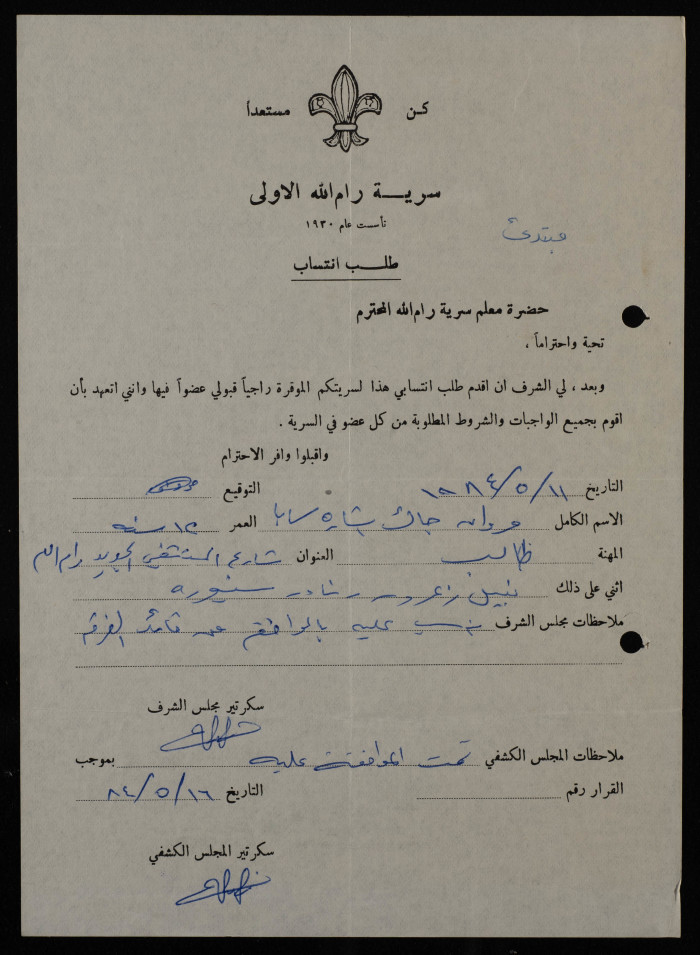 كـن مستعداً
سريـــة رام الله الاولى
تأسست عام ١٩٣٠
مبتدئ
طلـــب انتساب
حضرة معلم سرية رام الله المحترم
تحية واحتراماً ،
وبعد ، لي الشرف ان اقدم طلب انتسابي هذا لسريتكم الموقرة راجياً قبولي عضواً فيها وانني اتعهد بأن
اقوم بجميع الواجبات والشروط المطلوبة من كل عضو في السرية .
واقبلوا وافر الاحترام
التاريخ ١١/٥/١٩٨٤ التوقيع
الاسم الكامل مروان جاك بشاره سابا العمر ١٢ سنه
المهنة طالب العنوان شارع المستشفى الجديد رام الله
اثني على ذلك نبيل زعرور رشاد
ملاحظات مجلس الشرف عليه بالموافقه من قائد الفرقه
سكرتير مجلس الشرف
ملاحظات المجلس الكشفي تمت الموافقة عليه بموجب
القرار رقم التاريخ ١٦/٥/٨٤
سكرتير المجلس الكشفي